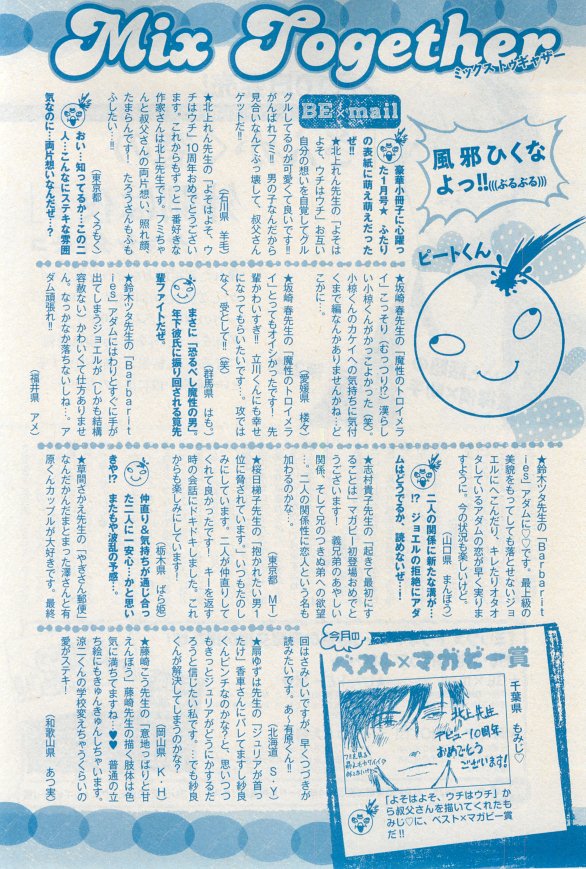 Mix Together
ミックス トゥギャザー
風邪ひくな
よっ!!(((ぶるぶる)))
ピートくん
BE×mail
豪華小冊子に心躍っ
た1月号★ ふたり
の表紙に萌え萌えだった
ぜ!!
★北上れん先生の「よそは
よそ、ウチはウチ」お互い
自分の想いを自覚してグル
グルしてるのが可愛くて良いです!!
がんばれフミ!! 男の子なんだから
見合いなんてぶっ壊して、叔父さん
ゲットだ!!
(石川県 羊毛)
★北上れん先生の「よそはよそ、ウ
チはウチ」10周年おめでとうござい
ます。これからもずっと一番好きな
作家さんは北上先生です。フミちゃ
んと叔父さんの両片想い、照れ顔、
たまらんです! たろうさんもふも
ふしたい!!
(東京都 くろもく)
おい…知ってるか…この二
人…こんなにステキな雰囲
気なのに…両片想いなんだぜ…?
★坂崎 春先生の「魔性のトロイメラ
イ」こっそり(むっつり!?)漢らし
い小椋くんがかっこよかった(笑)。
小椋くんのカケイへの気持ちに気付
くまで編なんかありませんかね…ど
こかに…。
(愛媛県 楼々)
★坂崎 春先生の「魔性のトロイメラ
イ」とってもオイシかったです! 先
輩かわいすぎ!! 立川くんにも幸せ
になってもらいたいです…。攻では
なく、受として!!(笑)
(群馬県 はも)
まさに「恐るべし魔性の男」。
年下彼氏に振り回される筧先
輩ファイトだぜ。
★鈴木ツタ先生の「Barbarit
ies」アダムにはわりとすぐに手が
出てしまうジョエルが(しかも結構
容赦ない)かわいくて仕方ありませ
ん。なっかなか落ちないしね…。ア
ダム頑張れ!!
(福井県 アメ)
★鈴木ツタ先生の「Barbarit
ies」アダムに♡♡です。最上級の
美貌をもってしても落とせないジョ
エルにへこんだり、キレたりオタオ
タしているアダムの恋が早く実りま
すように。今の状況も楽しいけど。
(山口県 まんぼう)
二人の関係に新たな溝が…
!? ジョエルの拒絶にアダ
ムはどうでるか、読めないぜ…!
★志村貴子先生の「起きて最初にす
ることは」マガビー初登場おめでと
うございます! 義兄弟のあやしい
関係、そして兄のつきぬ弟への欲望
…。二人の関係性に恋人という名も
加わるのかな…。
(東京都 MT)
★桜日梯子先生の「抱かれたい男1
位に脅されています。」いつもたのし
みにしています。二人が仲直りして
くれて良かったです! キーを返す
時の会話にドキドキしました。これ
からも楽しみにしています!
(栃木県 ばら姫)
仲直り&気持ちが通じ合っ
た二人に一安心…かと思い
きや!? またもや波乱の予感…。
★草間さかえ先生の「やぎさん郵便」
なんだかんだまとまった澤さんと有
原くんカップルが大好きです。最終
回はさみしいですが、早くつづきが
読みたいです。あ～有原くん!!
(北海道 S・Y)
★扇ゆずは先生の「ジュリアが首っ
たけ」香車さんにバレてますし紗良
くんピンチなのかな?と、思いつつ
もきっとジュリアがどうにかするだ
ろうと信じたい私です。…でも紗良
くんが解決してしまうのかな?
(岡山県 K・H)
★藤崎こう先生の「意地っぱりと甘
えんぼう」藤崎先生の描く肢体は色
気に満ちてますね!♥♥ 普通の立
ち絵にもきゅんきゅんしちゃいます。
涼二くんの学校変えちゃうくらいの
愛がステキ!
(和歌山県 あつ実)
今月の
ベスト×マガビー賞
千葉県 もみじ♡
北上先生
デビュー10周年
おめでとう
ございます!
「よそはよそ、ウチはウチ」か
ら叔父さんを描いてくれたも
みじ♡に、ベスト×マガビー賞
だ!!